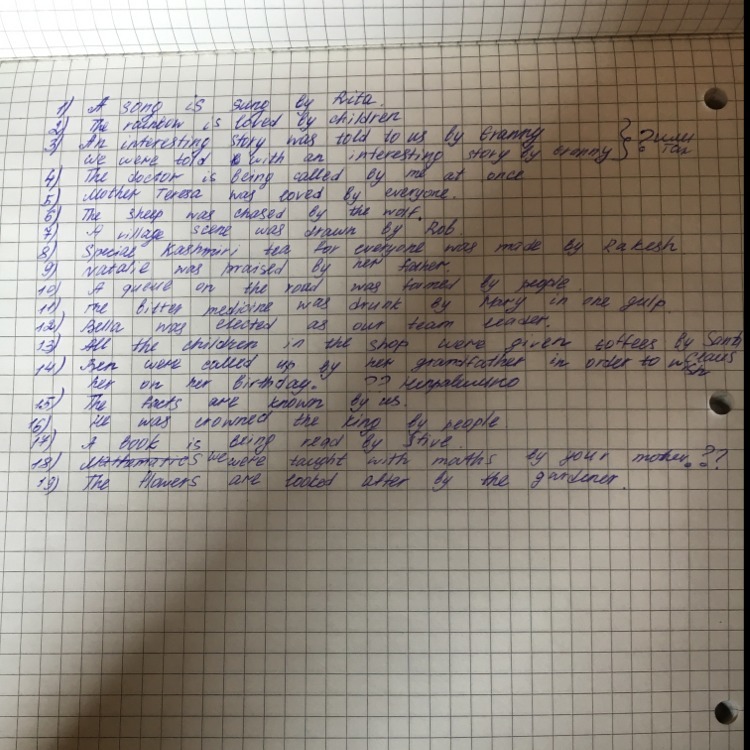 1) A song is sung by Rita.
2) The rainbow is loved by children
3) An interesting story was told to us by Granny } ? или
we were told with an interesting story by Granny } так
4) The doctor is being called by me at once
5) Mother Teresa was loved by everyone.
6) The sheep was chased by the wolf.
7) A village scene was drawn by Rob.
8) Special Kashmiri tea for everyone was made by Rakesh
9) Natalie was praised by her father.
10) A queue on the road was formed by people.
11) The bitter medicine was drunk by Mary in one gulp.
12) Bella was elected as our team leader.
13) All the children in the shop were given toffees by Santa
Claus
14) Ben were called up by her grandfather in order to wish
her on her birthday. ?? неправильно
15) The facts are known by us.
16) He was crowned the king by people.
17) A book is being read by Stive.
18) Mathematics we were taught with maths by your mother.??
19) The flowers are looked after by the gardener.